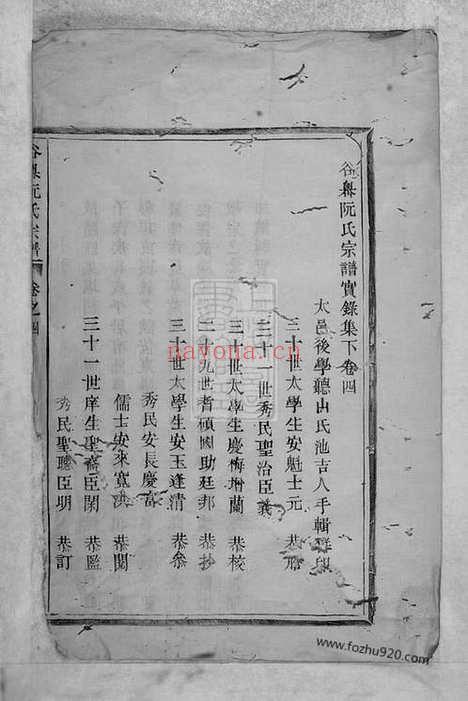 谷界阮氏宗譜實錄集下卷四
太邑後學聽山氏池吉人手輯
三十世太學生安魁士元 恭
三十一世秀民聖治臣義
三十世太學生慶梅增蘭 恭校
二十九世耆碩國助廷邦 恭抄
三十世太學生安玉逢清 恭叅
秀民安長慶富
儒士安來寬洪 恭閱
三十一世庠生聖齋臣閑 恭監
秀民聖聰臣明 恭訂
阮氏宗譜 卷之四
nayona.cn
www.fozhu920.com